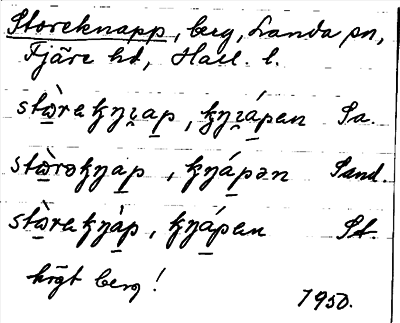 Storeknapp, berg, Landa sn,
Fjäre hd, Hall. l.
stὼ̲rakŋɩap, kŋɩápan Sa.
stὼ̲rəkŋap, kŋápən Sand.
stὼ̲rakŋàp, kŋápan St.
högt berg!
1950.